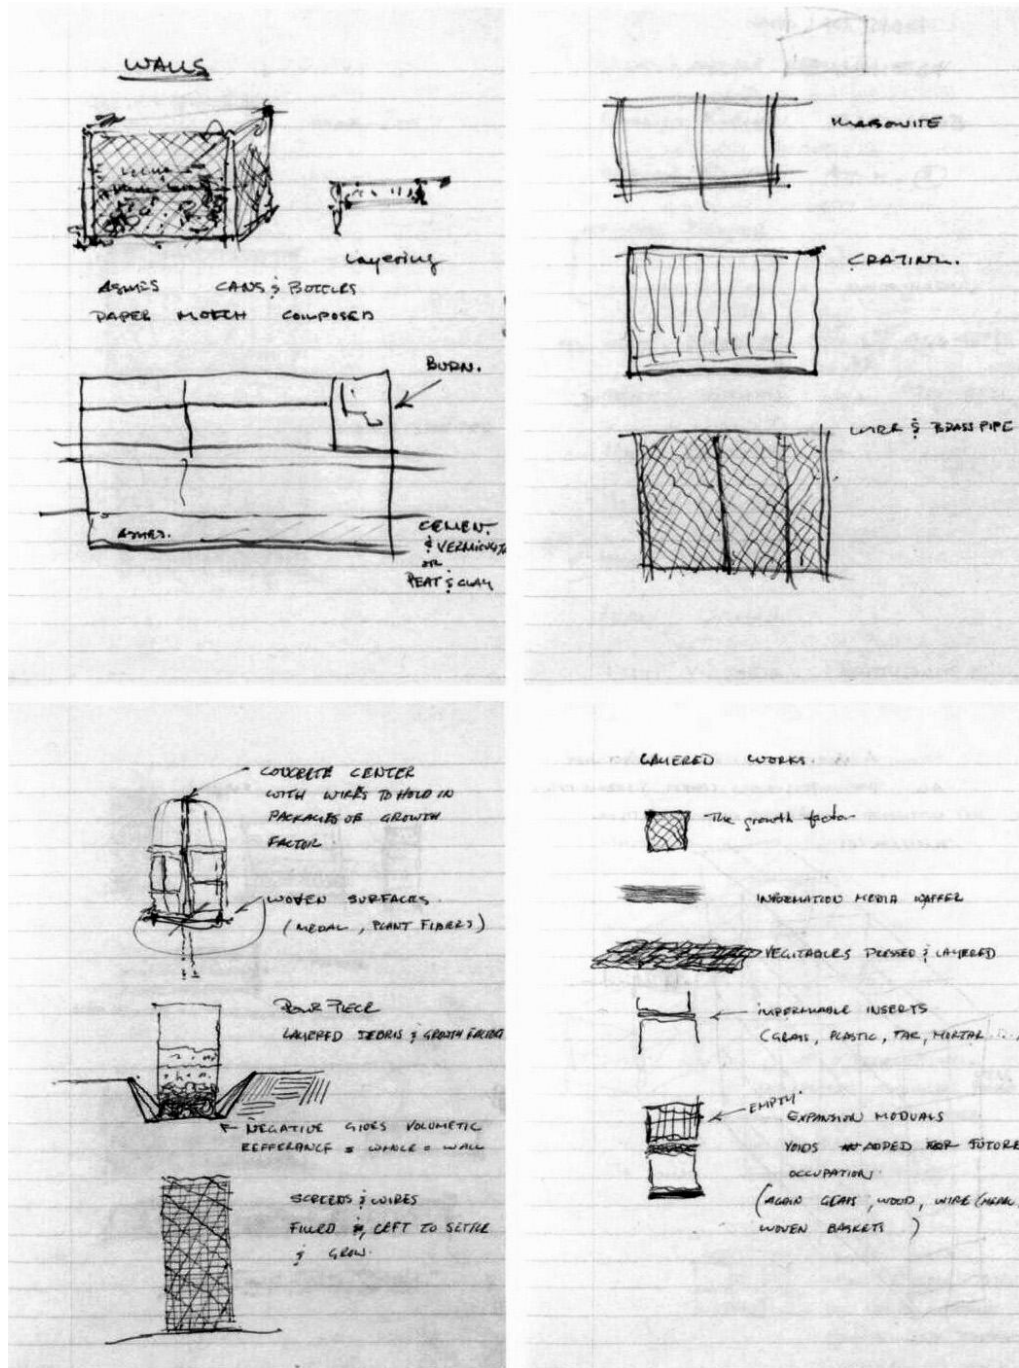 WALLS
Layering
ASHES CANS & BOTTLES
PAPER COMPOSED
BURN.
ASHES.
CEMENT
& VERMICU
OR
PEAT & CLAY
MASONITE
CRATING.
WIRE & BRASS PIPE
CONCRETE CENTER
WITH WIRES TO HOLD IN
PACKAGES OF GROWTH
FACTOR.
WOVEN SURFACES.
(MEDAL, PLANT FIBERS)
POUR PIECE
LAYERED DEBRIS & GROWTH FACTOR
NEGATIVE GIVES VOLUMETIC
REFFERANCE = WHOLE = WALL
SCREENS & WIRES
FILLED &, LEFT TO SETTLE
& GROW.
LAYERED WORKS.
The growth factor
INFORMATION MEDIA WAFFER
VEGITABLES PRESSED & LAYERED
IMPERMIABLE INSERTS
(GLASS, PLASTIC, TAR, MORTAR....
EMPTY.
EXPANSION MODUALS
VOIDS ADDED FOR FUTURE
OCCUPATION.
(AGAIN GLASS, WOOD, WIRE (
WOVEN BASKETS )